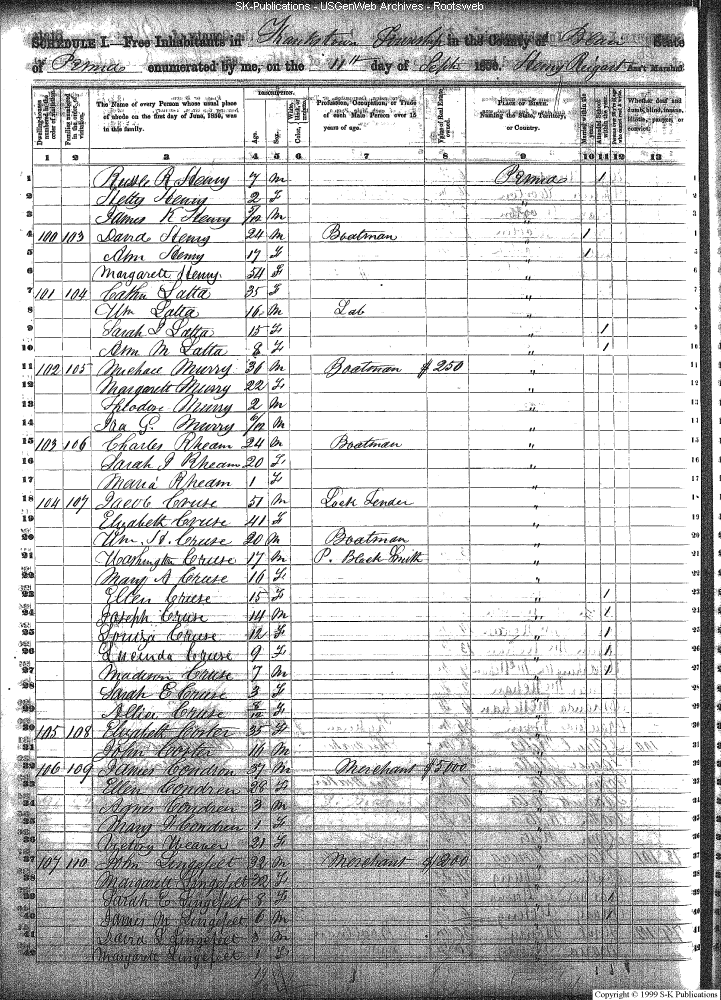 SK-Publications - USGenWeb Archives - Rootsweb
SCHEDULE I.—Free Inhabitants in Township in the County of Blair State
of Penna enumerated by me, on the 11th day of Sept 1850. Henry Reigart Ass't Marshal
DESCRIPTION.
Dwelling-houses numbered in the order of visitation.
Families numbered in the order of visitation.
The Name of every Person whose usual place of abode on the first day of June, 1850, was in this family.
Age.
Sex.
White, black, or mulatto.
Color,
Profession, Occupation, or Trade of each Male Person over 15 years of age.
Value of Real Estate owned.
PLACE OF BIRTH. Naming the State, Territory, or Country.
Married within the year.
Attended School within the year.
Whether deaf and dumb, blind, insane, idiotic, pauper, or convict.
1 2 3 4 5 6 7 8 9 10 11 12 13
1 R Henry 7 M Penna 1 1
2 Hetty Henry 2 F " 2
3 James K Henry /12 M " 3
4 100 103 David Henry 24 M Boatman " 1 4
5 Ann Henry 17 F " 1 5
6 Margarett Henry 54 F " 6
7 101 104 Latta 35 F " 7
8 Wm Latta 16 M Lab " 8
9 Sarah J Latta 15 F " 1 9
10 Ann M Latta 8 F " 1 10
11 102 105 Michael Murry 30 M Boatman $ 250 " 11
12 Margarett Murry 22 F " 12
13 Theodore Murry 2 M " 13
14 Ira G. Murry /12 M " 14
15 103 106 Charles Rheam 24 M Boatman " 15
16 Sarah J Rheam 20 F " 16
17 Maria Rheam 1 F " 17
18 104 107 Jacob Cruse 51 M Lock Tender " 18
19 Elizabeth Cruse 41 F " 19
20 Wm. H. Cruse 20 M Boatman " 20
21 Washington Cruse 17 M P. Black Smith " 21
22 Mary A Cruse 16 F " 22
23 Ellen Cruse 15 F " 1 23
24 Joseph Cruse 14 M " 1 24
25 Louiza Cruse 12 F " 1 25
26 Lucinda Cruse 9 F " 1 26
27 Madison Cruse 7 M " 1 27
28 Sarah E Cruse 3 F " 28
29 Cruse /12 F " 29
30 105 108 Elizabeth Corter 35 F " 30
31 John Corter 14 M " 31
32 106 109 James Condron 37 M Merchant $5,000 " 32
33 Ellen Condren 28 F " 33
34 Agnes Condren 3 M " 34
35 Mary J Condren 1 F " 35
36 Victory Weaver 21 F " 36
37 107 110 John Lingefelt 32 M Merchant " 37
38 Margarett Lingefelt 32 F " 38
39 Sarah E Lingefelt 8 F " 1 39
40 James M Lingefelt 6 M " 1 40
41 David L Lingefelt 3 M " 41
42 Margarett Lingefelt 1 F " 42
Copyright © 1999 S-K Publications